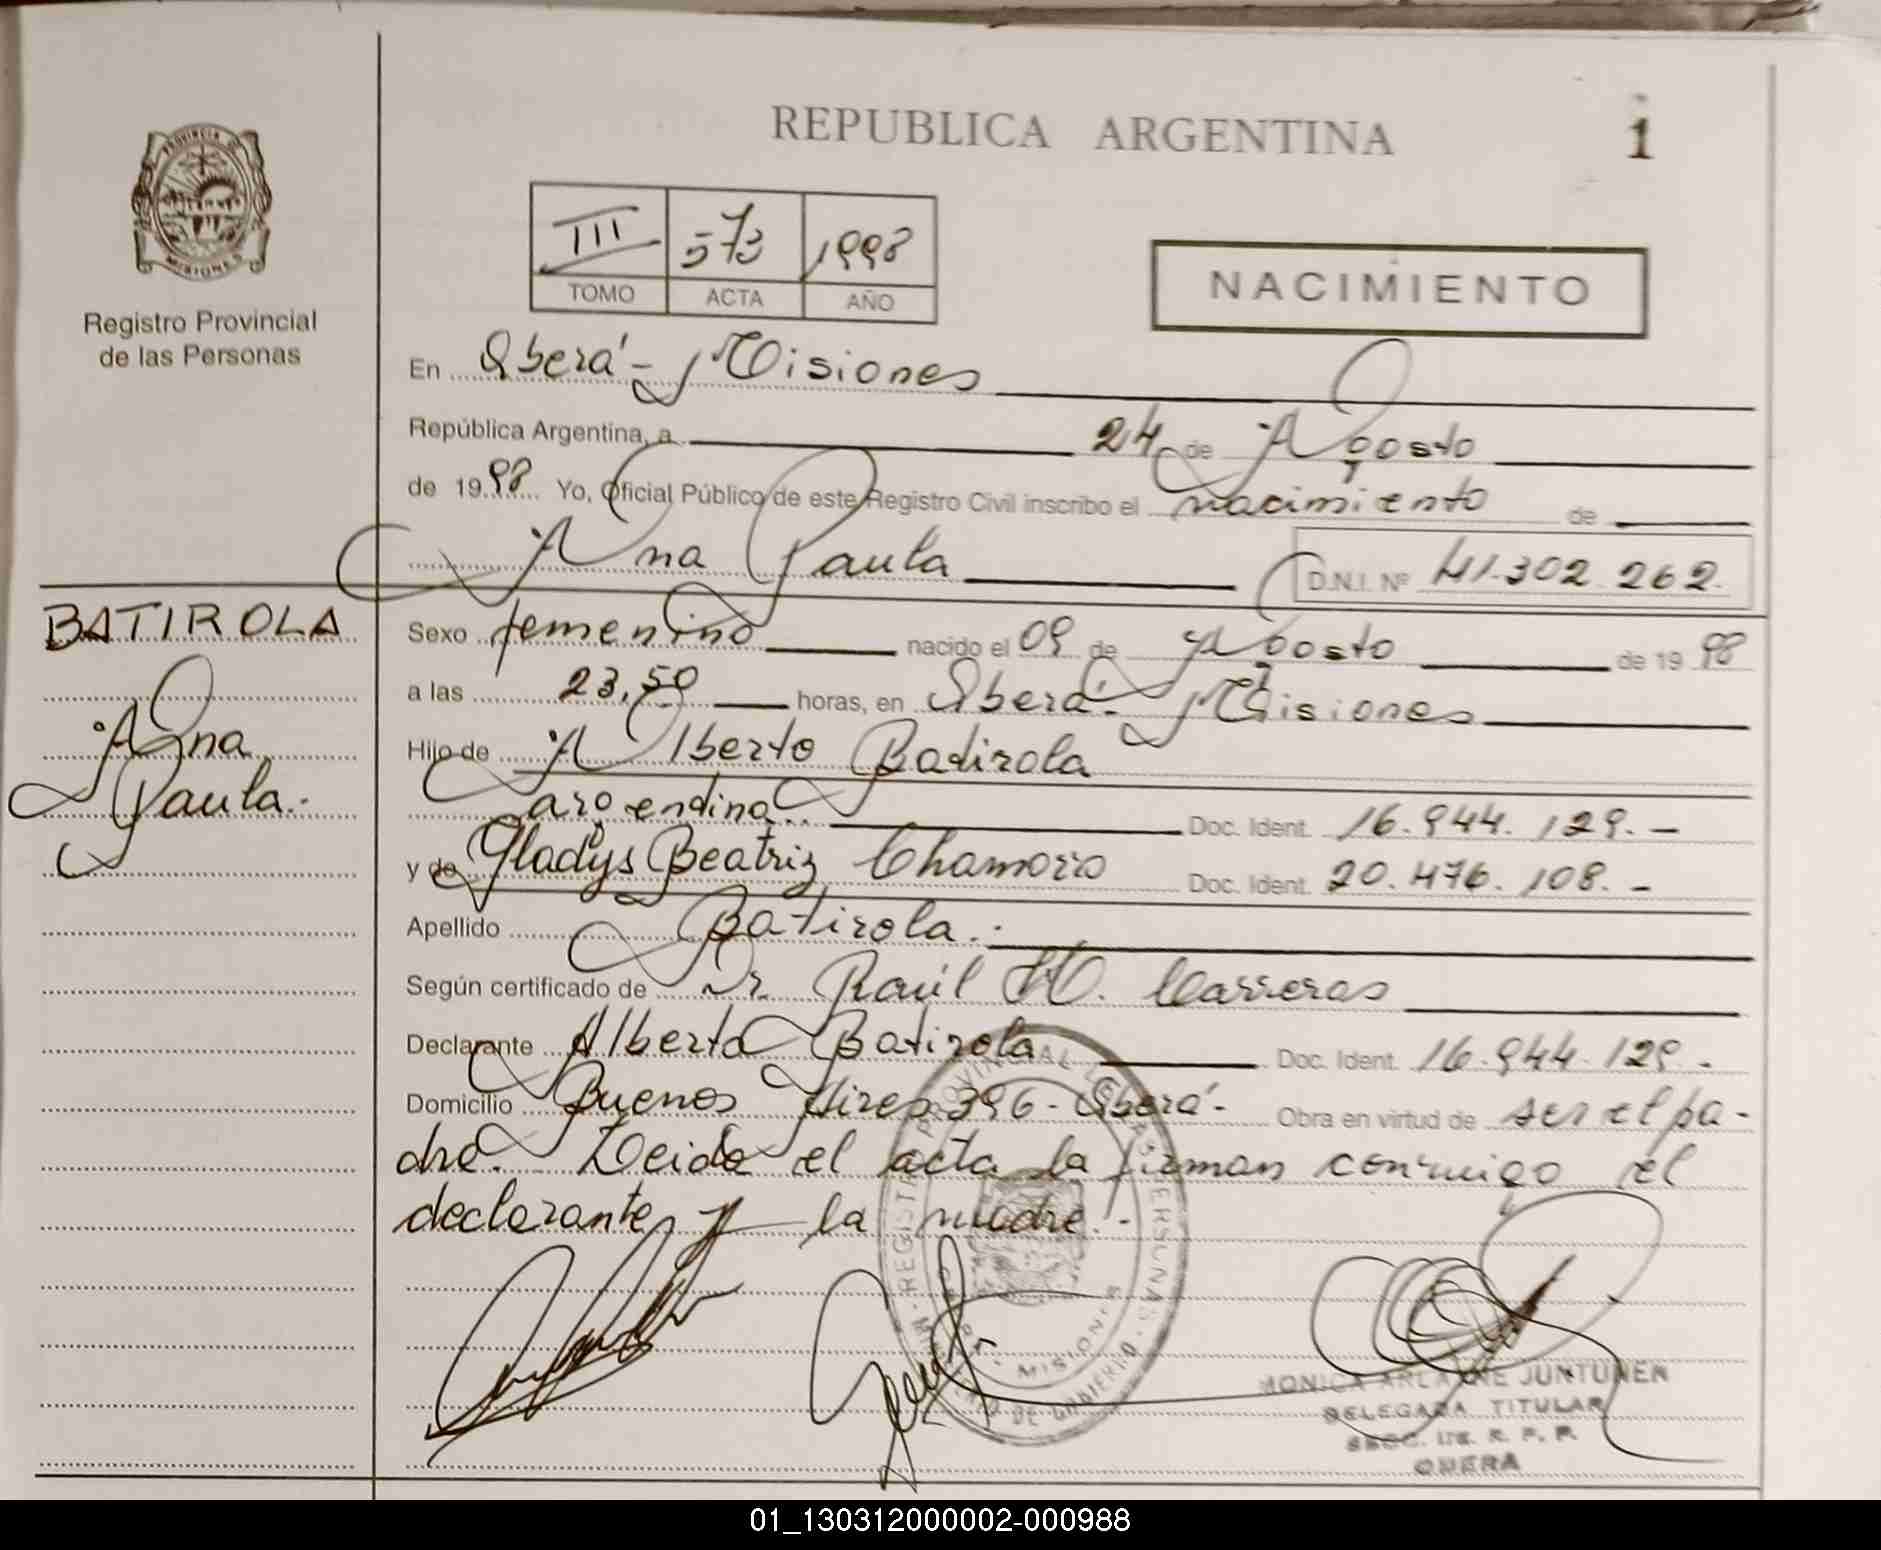 REPUBLICA ARGENTINA
1
PROVINCIA DE
MISIONES
Registro Provincial
de las Personas
III 573 1998
TOMO ACTA AÑO
NACIMIENTO
En Oberá - Misiones
República Argentina, a 24 de Agosto
de 1998 Yo, Oficial Público de este Registro Civil inscribo el nacimiento de
Ana Paula D.N.I. Nº 41.302.262.
BATIROLA
Ana
Paula.-
Sexo femenino nacido el 09 de Agosto de 1998
a las 23,50 horas, en Oberá - Misiones
Hijo de Alberto Batirola
argentina.. Doc. Ident. 16.944.129.-
y de Gladys Beatriz Chamorro Doc. Ident. 20.476.108.-
Apellido Batirola.-
Según certificado de Dr. Raúl H. Carreras
Declarante Alberto Batirola Doc. Ident. 16.944.129.-
Domicilio Buenos Aires 396 - Oberá - Obra en virtud de ser el pa-
dre. Leida el acta la firman conmigo el
declarante y la madre.-
REGISTRO PROVINCIAL DE LAS PERSONAS
MISIONES
MINISTERIO DE GOBIERNO
MONICA ARLAINE JUNTUNEN
DELEGADA TITULAR
SECC. 1ra. R. P. P.
OBERA
01_130312000002-000988